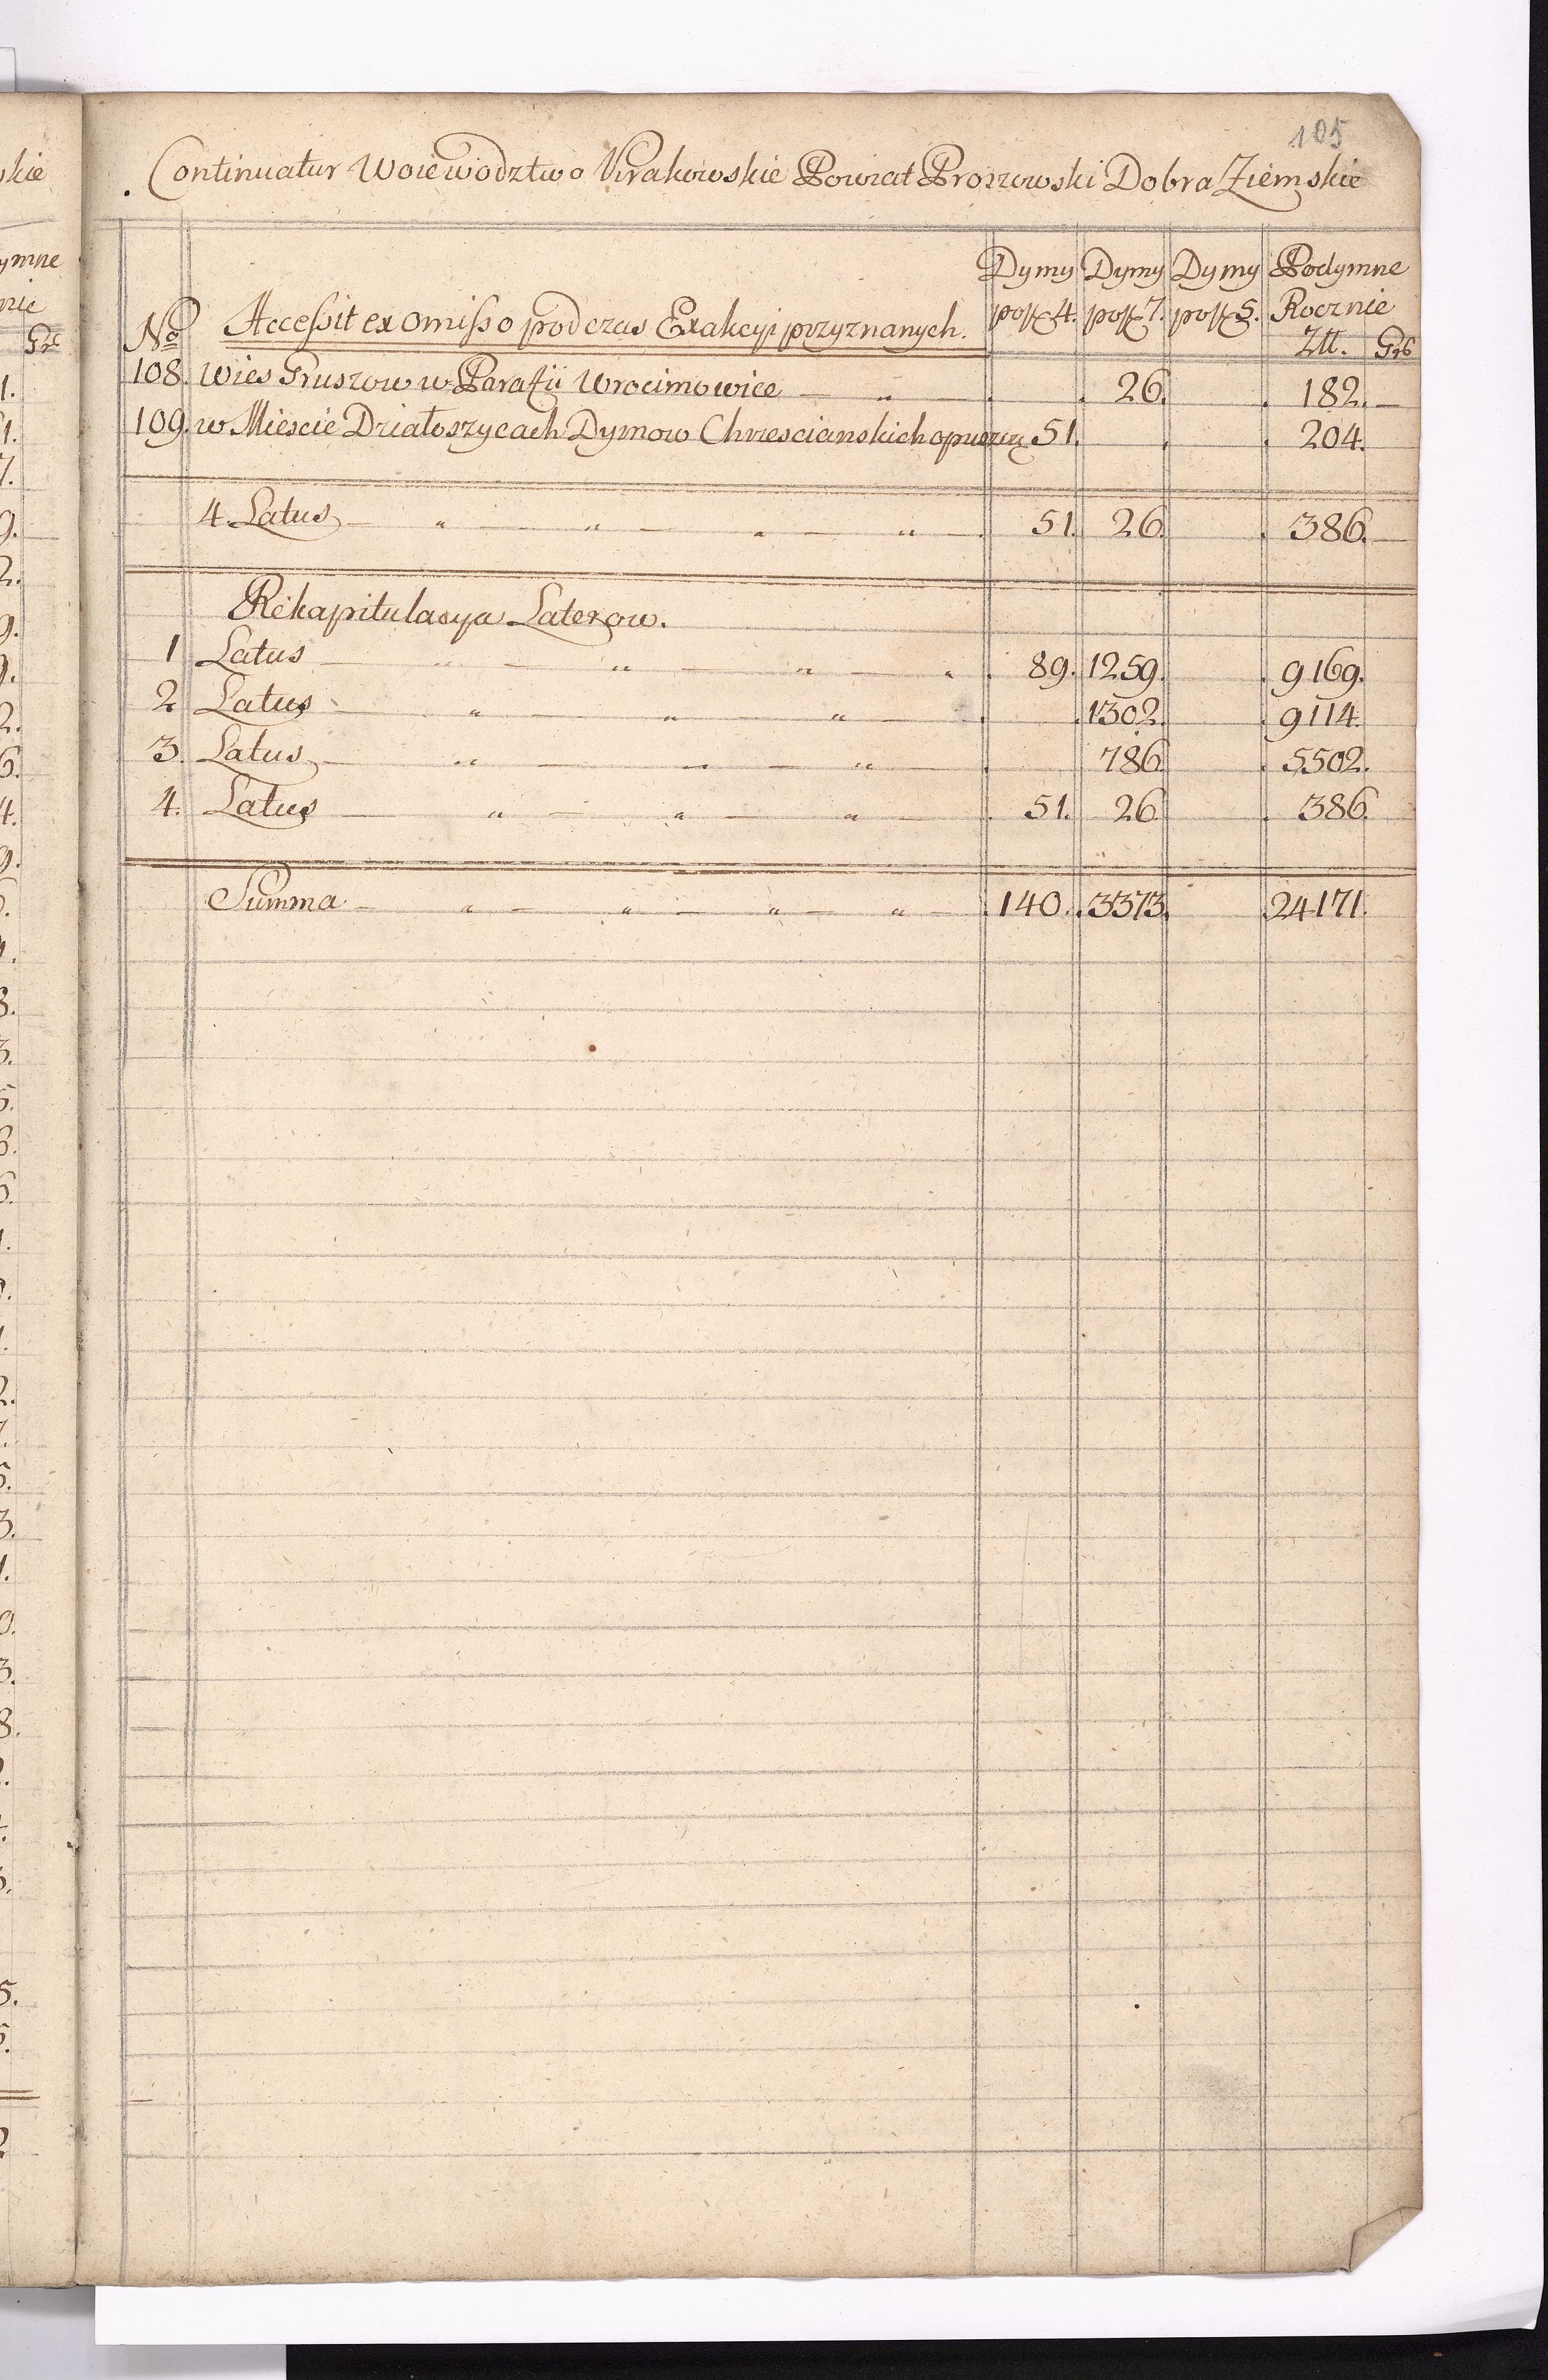 105
Continuatur Woiewodztwo Krakowskie Powiat Proszowski Dobra Ziemskie
Dymy Dymy Dymy Podymne
No Accessit ex omisso podczas Exakcyi przyznanych. po 4. po 7. po 5. Rocznie
Złł. Gr
108. Wies Gruszow w Parafii Wrocimowice — „ — 26. 182. —
109. w Miescie Działoszycach Dymow Chrzescianskich 51. 204.
4. Latus — „ — „ — „ — „ — 51. 26. 386. —
Rekapitulacya Laterow.
1 Latus — „ — „ — „ — „ 89. 1259. 9169.
2 Latus — „ — „ — „ — 1302. 9114.
3. Latus — „ — „ — „ — 786. 5502.
4. Latus — „ — „ — „ — 51. 26. 386.
Summa — „ — „ — „ — „ — 140. 3373. 24171.